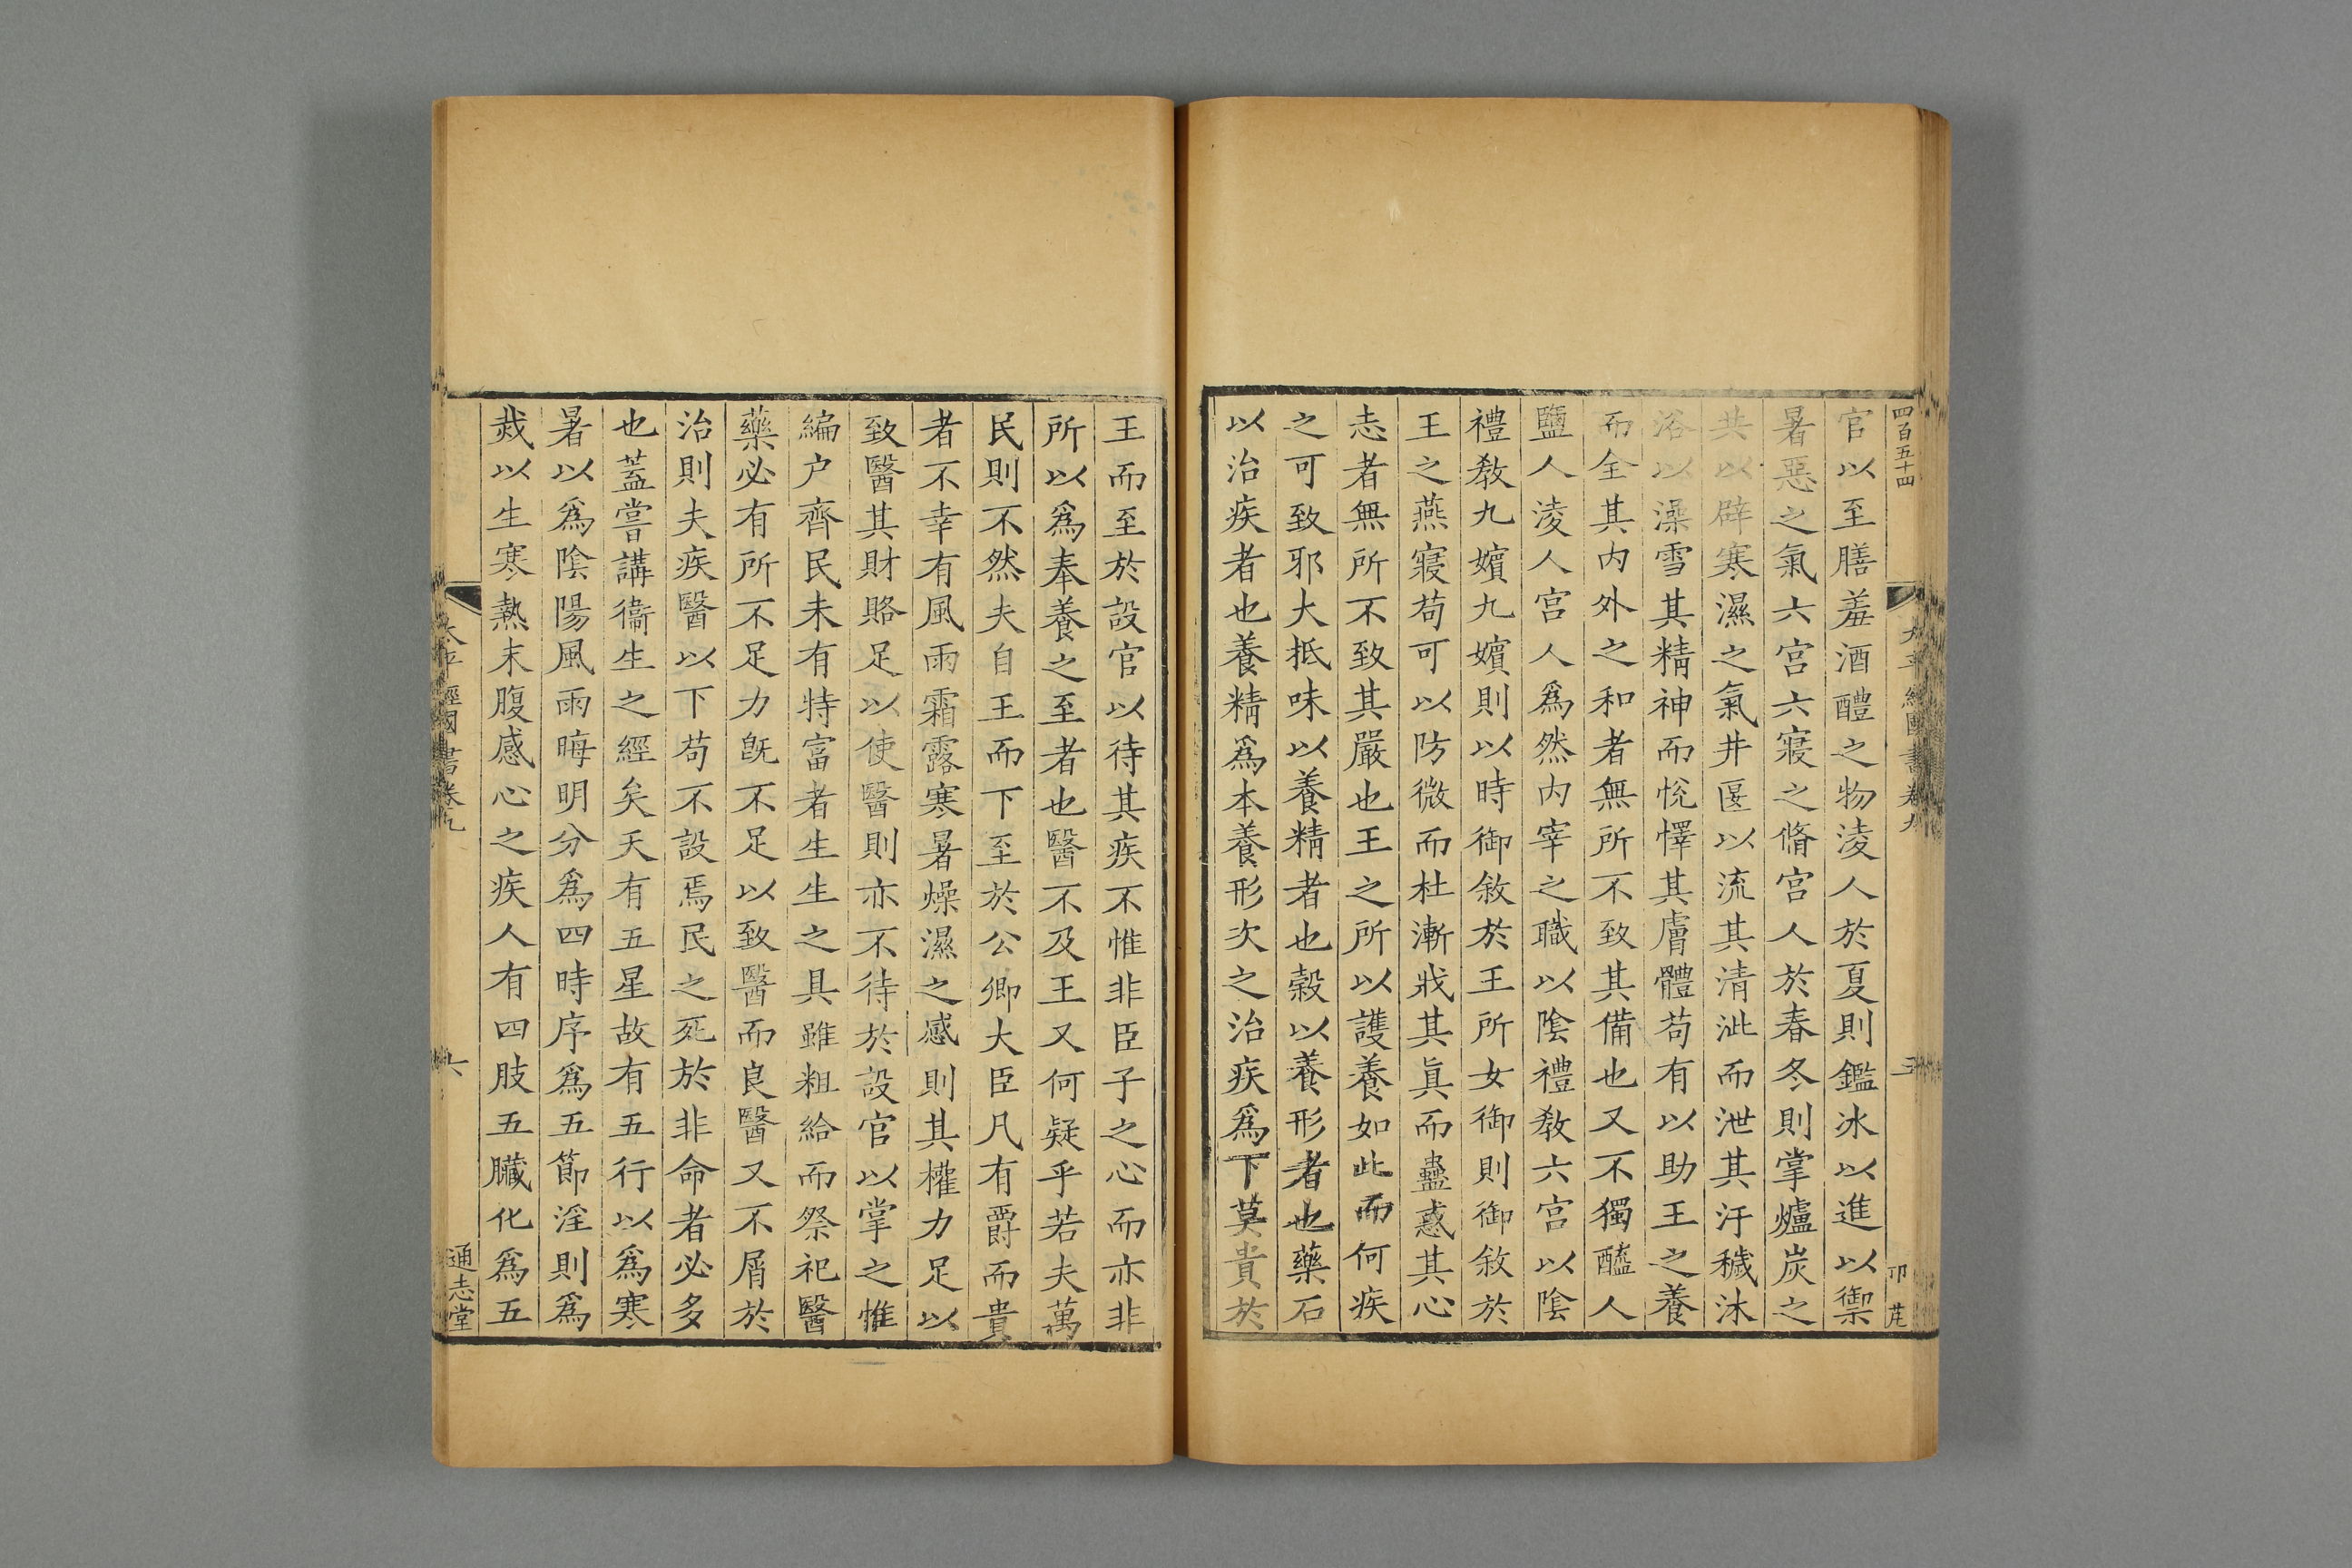 四百五十四
官以至膳羞酒醴之物淩人於夏則鑑冰以進以禦
暑惡之氣六宮六寢之脩宮人於春冬則掌爐炭之
共以辟寒濕之氣井匽以流其清泚而泄其汙穢沐
浴以澡雪其精神而悅懌其膚體苟有以助王之養
而全其内外之和者無所不致其備也又不獨醯人
鹽人淩人宮人爲然内宰之職以陰禮敎六宮以陰
禮敎九嬪九嬪則以時御敘於王所女御則御敘於
王之燕寢苟可以防微而杜漸戕其眞而蠱惑其心
志者無所不致其嚴也王之所以護養如此而何疾
之可致邪大抵味以養精者也穀以養形者也藥石
以治疾者也養精爲本養形次之治疾爲下莫貴於
王而至於設官以待其疾不惟非臣子之心而亦非
所以爲奉養之至者也醫不及王又何疑乎若夫萬
民則不然夫自王而下至於公卿大臣凡有爵而貴
者不幸有風雨霜露寒暑燥濕之感則其權力足以
致醫其財賂足以使醫則亦不待於設官以掌之惟
編户齊民未有特富者生生之具雖粗給而祭祀醫
藥必有所不足力旣不足以致醫而良醫又不屑於
治則夫疾醫以下苟不設焉民之死於非命者必多
也蓋嘗講衞生之經矣天有五星故有五行以爲寒
暑以爲陰陽風雨晦明分爲四時序爲五節淫則爲
烖以生寒熱末腹感心之疾人有四肢五臟化爲五
太平經國書卷九
六
通志堂